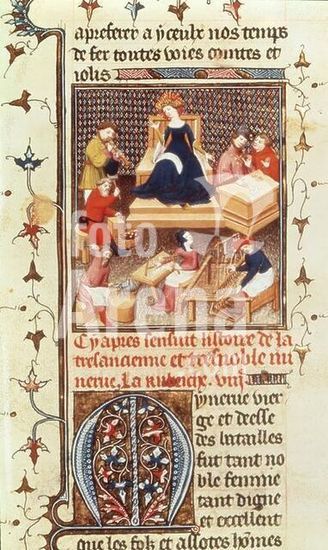 a preferer a yceulx nos temps
de fer toutes voies comtes et
iolis
Cy apres sensuit listoire de la
tresancienne et tresnoble mi
nerue. La Rubriche. viij
Mynerue vier
ge et deesse
des batailles
fut tant no
ble femme
tant digne
et excellent
que les folz et assotes hommes
foto
Arena